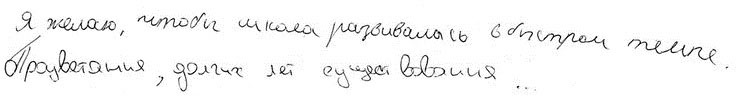 Я желаю, чтобы школа развивалась в быстром темпе.
Процветания, долгих лет существования ...